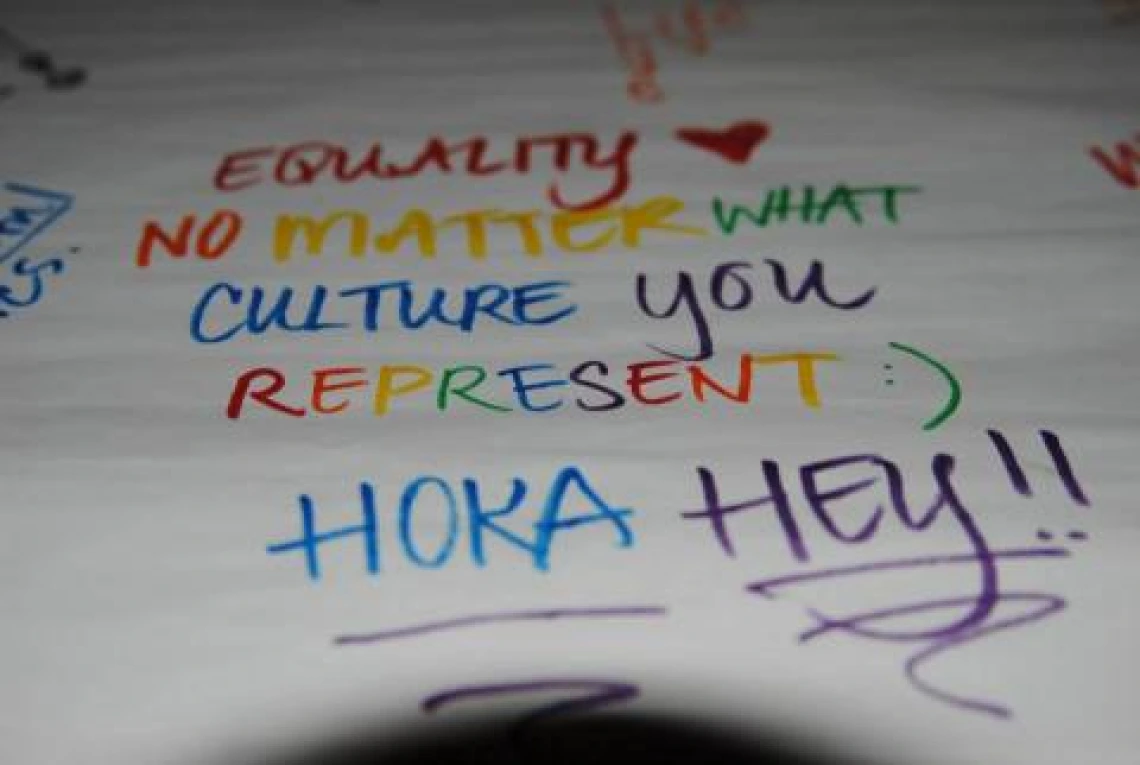 EQUALITY ♥
NO MATTER WHAT
CULTURE YOU
REPRESENT :)
HOKA HEY!!